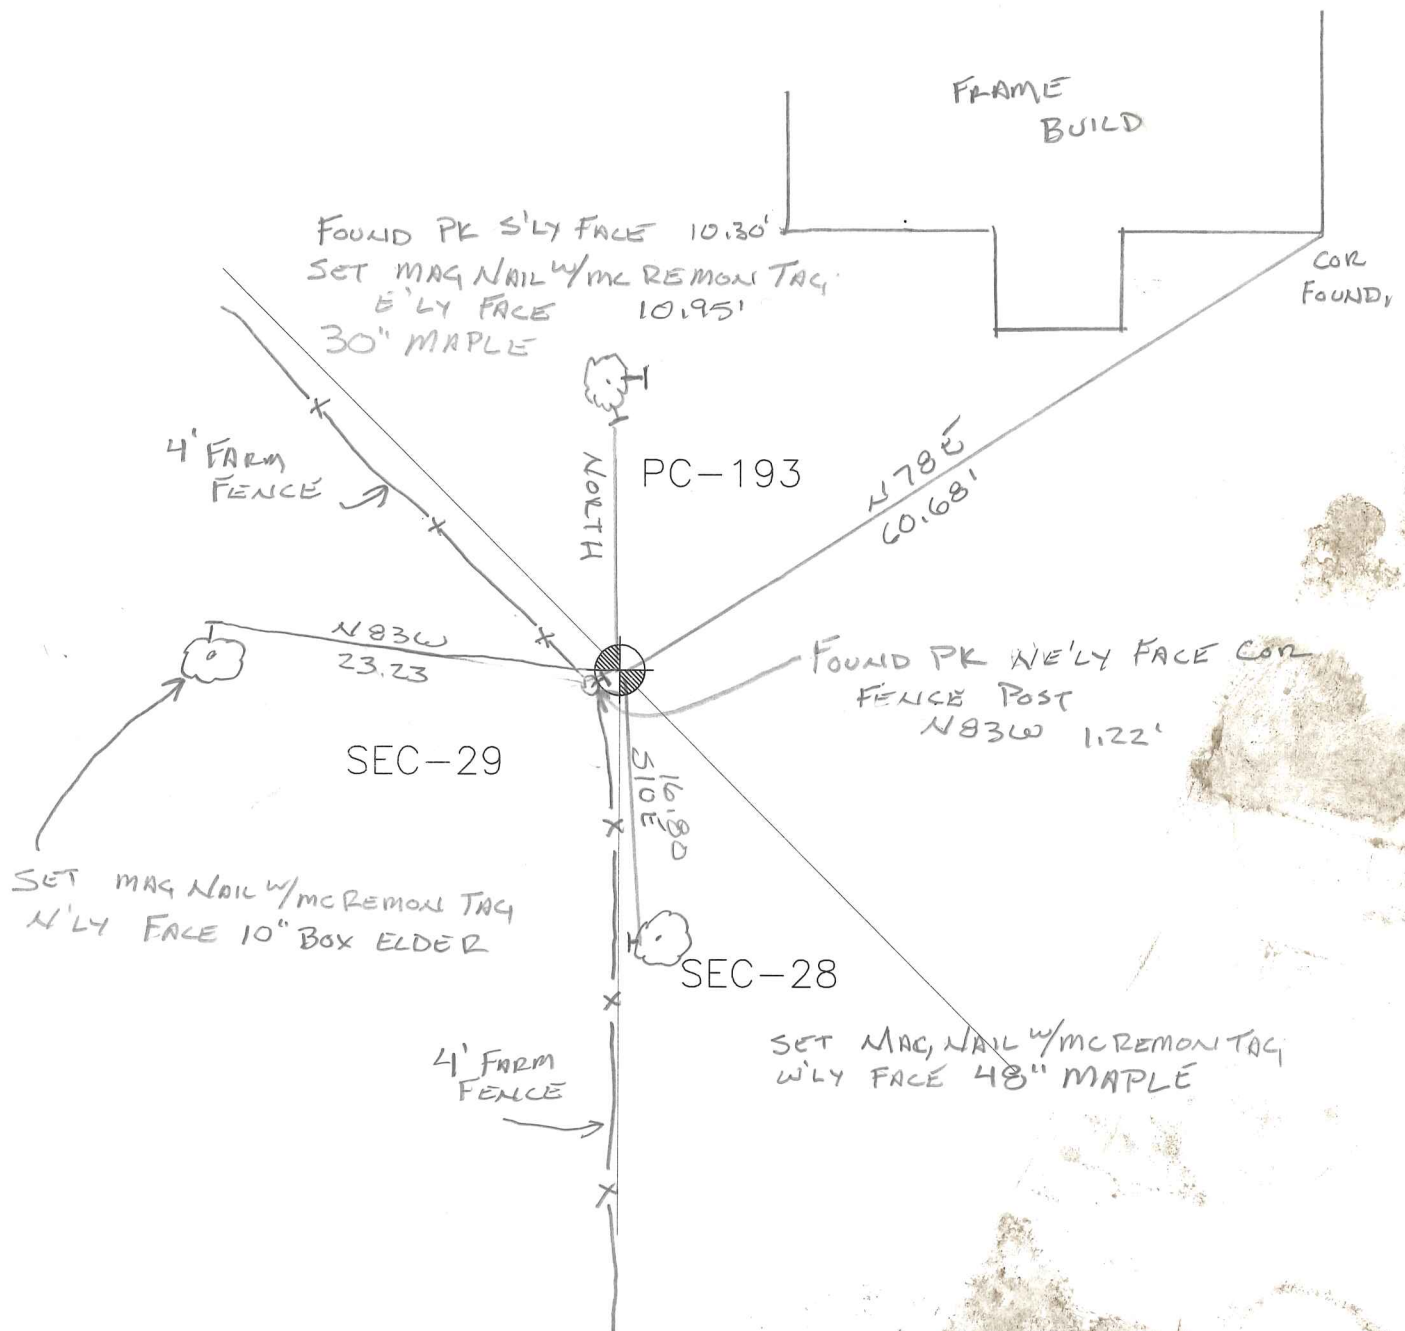 FRAME
BUILD
FOUND PK S'LY FACE 10.30'
SET MAG NAIL W/MC REMON TAG
E'LY FACE 10.95'
30" MAPLE
COR
FOUND,
4' FARM
FENCE
NORTH
PC-193
N78E
60.68'
N83W
23.23
FOUND PK NE'LY FACE COR
FENCE POST
N83W 1.22'
SEC-29
16.80
S10E
SET MAG NAIL W/MC REMON TAG
N'LY FACE 10" BOX ELDER
SEC-28
SET MAG NAIL W/MC REMON TAG
W'LY FACE 48" MAPLE
4' FARM
FENCE